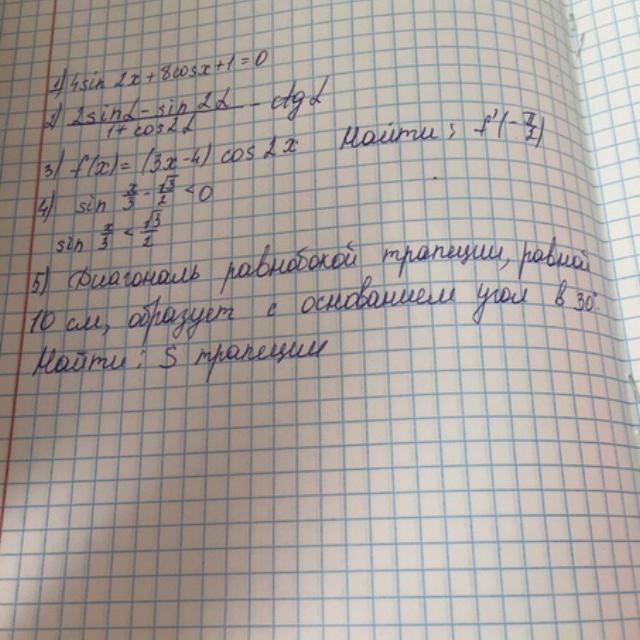 1) 4sin 2x + 8cosx + 1 = 0
2) (2sinα - sin 2α)/(1 + cos 2α) - ctg α
3) f(x) = (3x - 4) cos 2x Найти: f'(-π/2)
4) sin x/3 - √3/2 < 0
sin x/3 < √3/2
5) Диагональ равнобокой трапеции, равной
10 см, образует с основанием угол в 30°.
Найти: S трапеции